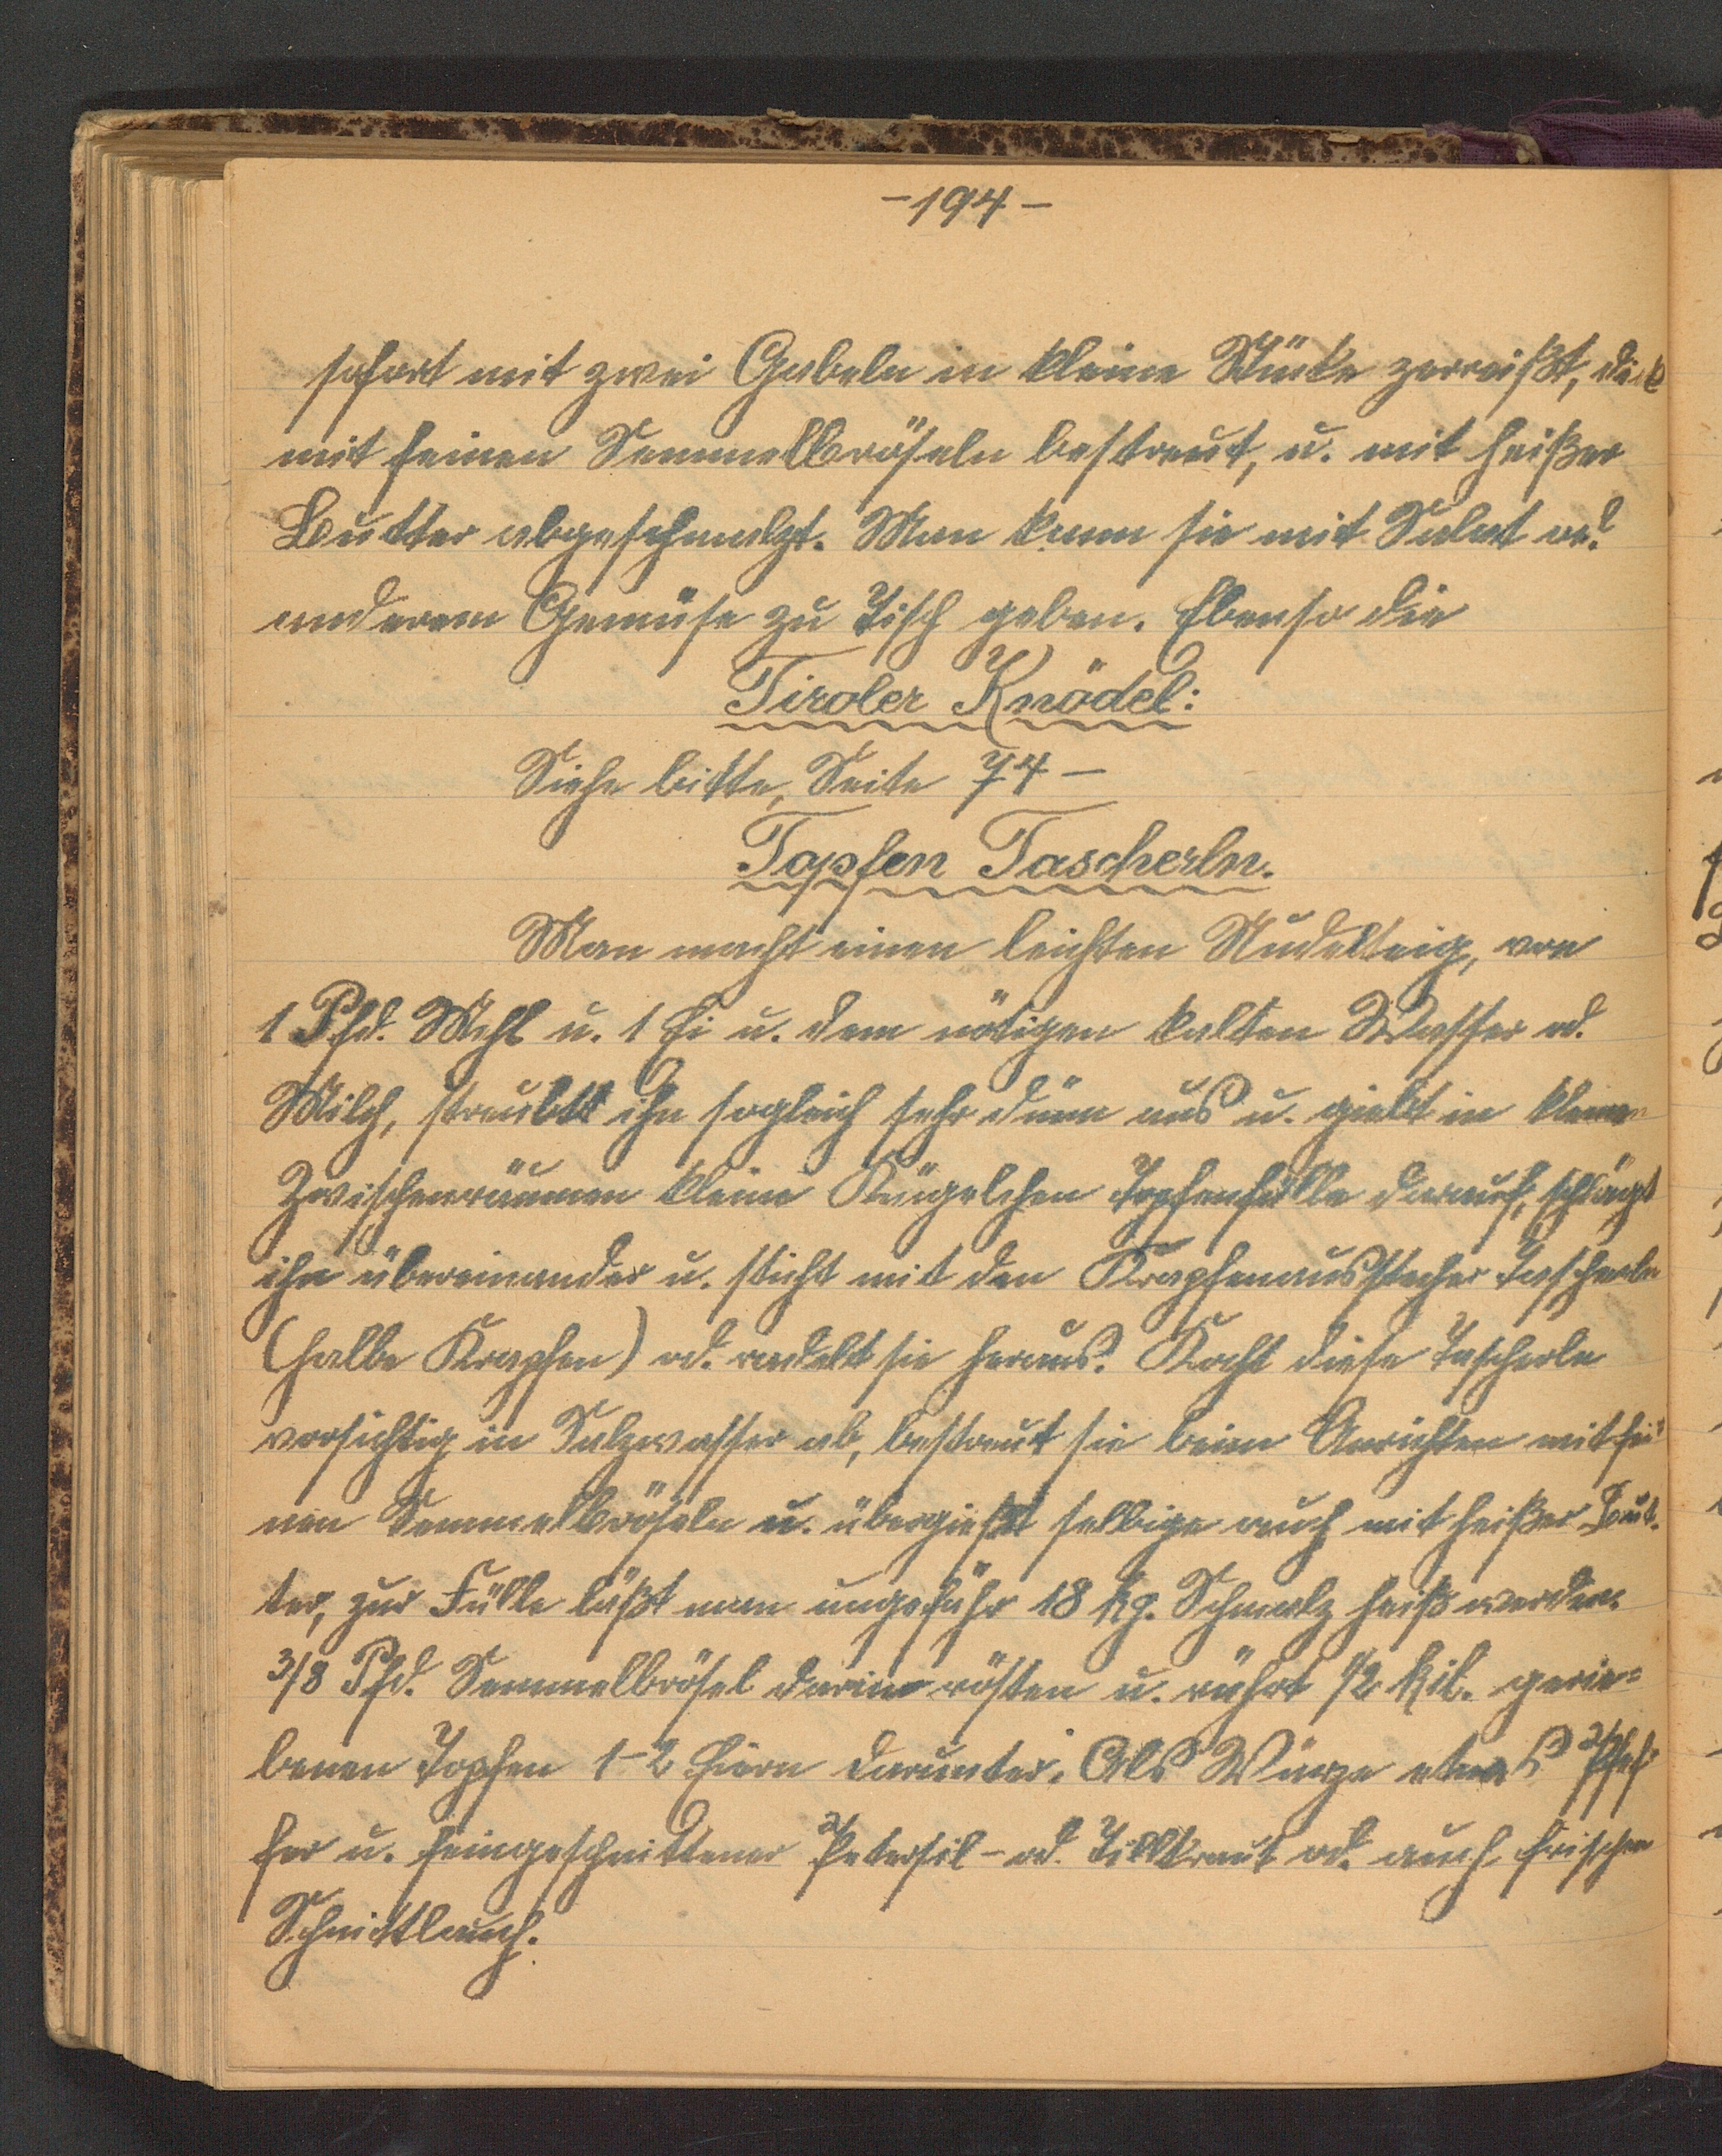 -194-
sofort mit zwei Gabeln in kleine Stücke zerreißt, dick
mit feinen Semmelbröseln bestreut, u. mit heißer
Butter abgeschmalzt. Man kann sie mit Salat od.
anderem Gemüse zu Tisch geben. Ebenso die
Tiroler Knödel:
Siehe bitte, Seite 74-
Topfen Tascherln.
Man macht einen leichten Nudelteig, von
1 Pfd. Mehl u. 1 Ei u. dem nötigen kalten Wasser od.
Milch, ihn sogleich sehr dünn aus u. giebt in kleinen
Zwischenräumen kleine Kügelchen Topfenfülle darauf, schlägt
ihn übereinander u. sticht mit den Krapfenausstecher Tascherln
(halbe Krapfen) od. radelt sie heraus. Kocht diese Tascherln
vorsichtig in Salzwasser ab, bestreut sie beim Anrichten mit fei-
nen Semmelbröseln u. übergießt selbige auch mit heißer But-
ter, zur Fülle läßt man ungefähr 18 kg. Schmalz heiß werden.
3/8 Pfd. Semmelbrösel darin rösten u. rührt 1/2 Kil. gerie=
benen Topfen 1-2 Eiern darunter. Als Würze etwas Pfef-
fer u. feingeschnittener Petersil- od. Dillkraut od. auch frischen
Schnittlauch.